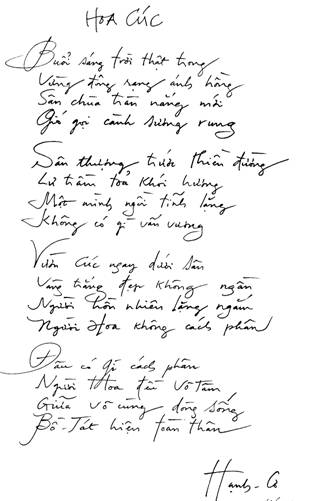 HOA CÚC
Buổi sáng trời thật trong
Vừng đông rạng ánh hồng
Sân chùa tràn nắng mới
Gió gọi cành sương rung
Sân thượng trước thiền đường
Lư trầm toả khói hương
Một mình ngồi tĩnh lặng
Không có gì vấn vương
Vườn cúc ngay dưới sân
Vàng trắng đẹp không ngần
Người hồn nhiên lặng ngắm
Người Hoa không cách phân
Đâu có gì cách phân
Người Hoa đều Vô Tâm
Giữa vô cùng dòng sống
Bồ-Tát hiện toàn thân